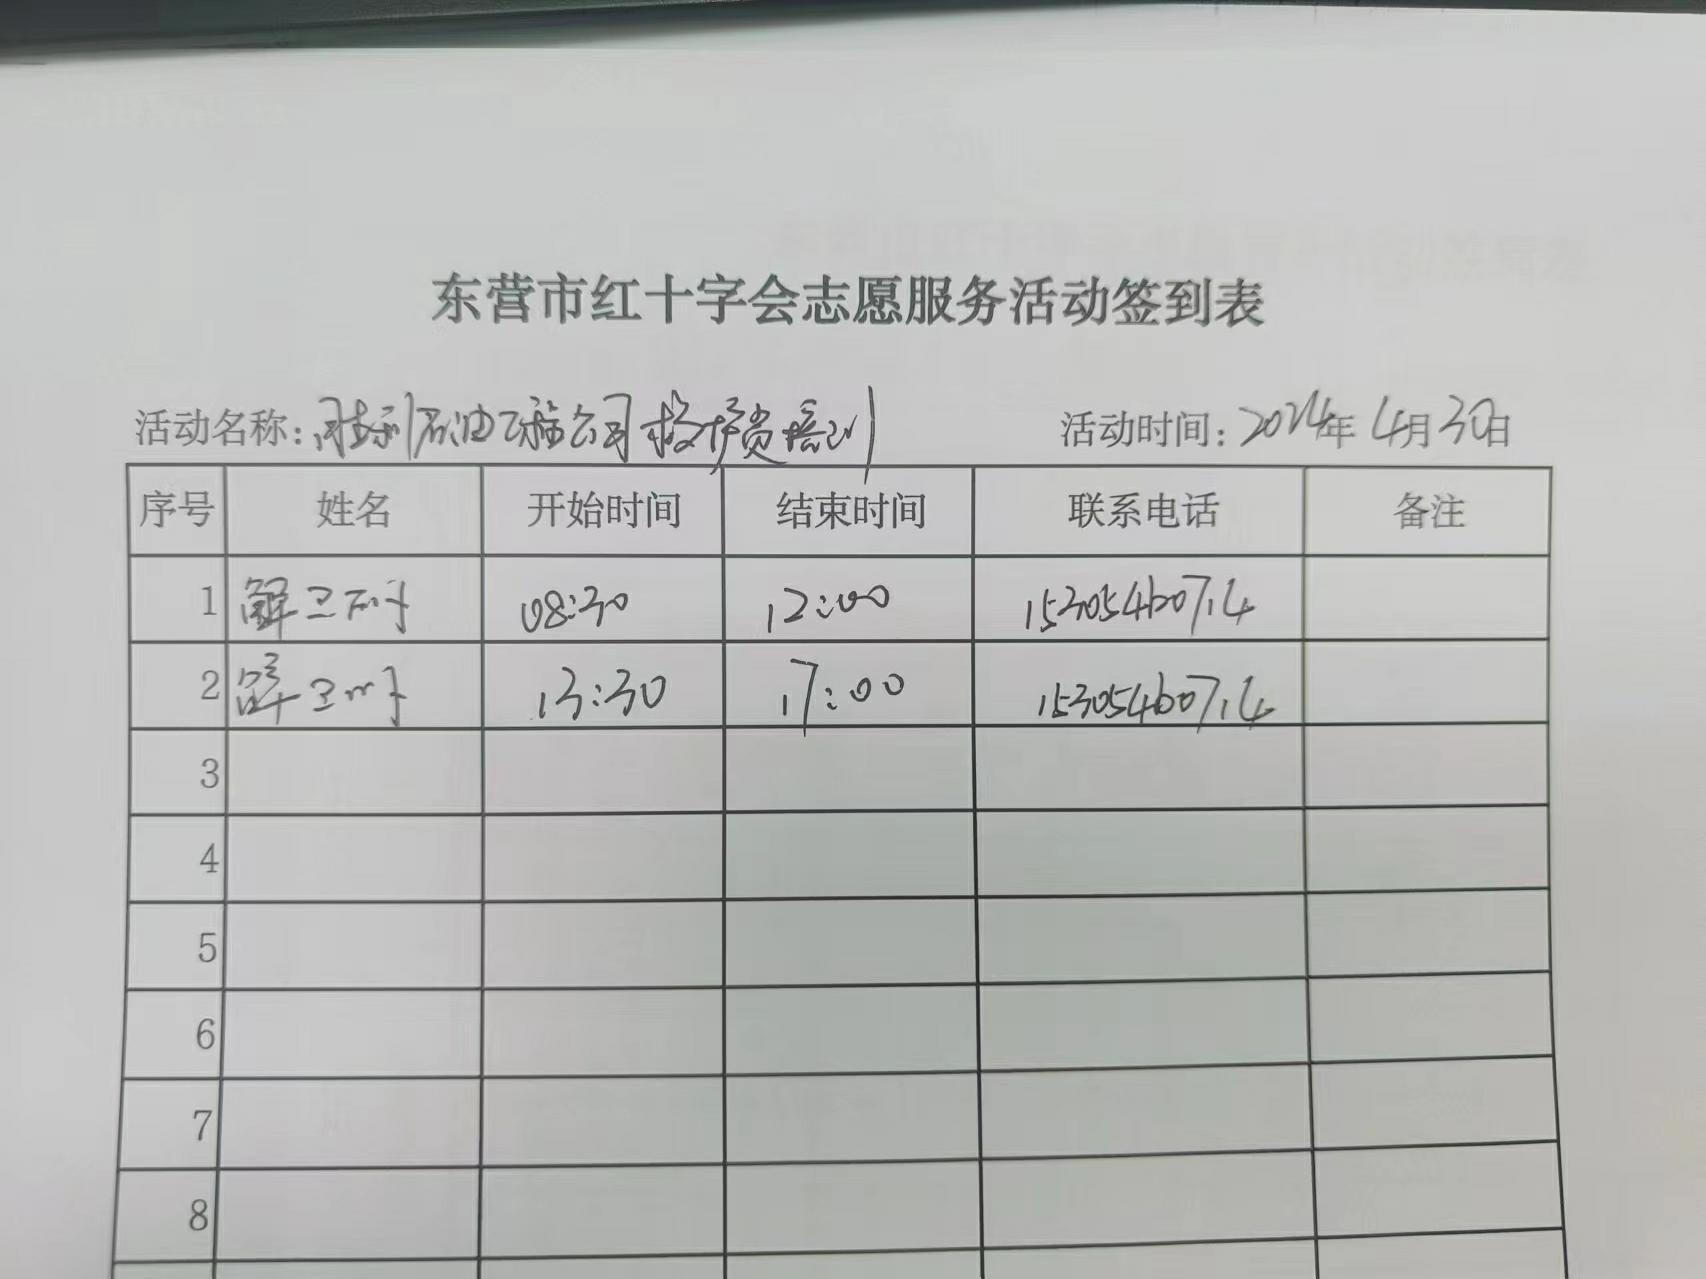 东营市红十字会志愿服务活动签到表
活动名称：胜利石油工程公司救护员培训 活动时间：2024年4月30日
序号 姓名 开始时间 结束时间 联系电话 备注
1 解卫 08:30 12:00 15305460714
2 解卫 13:30 17:00 15305460714
3
4
5
6
7
8